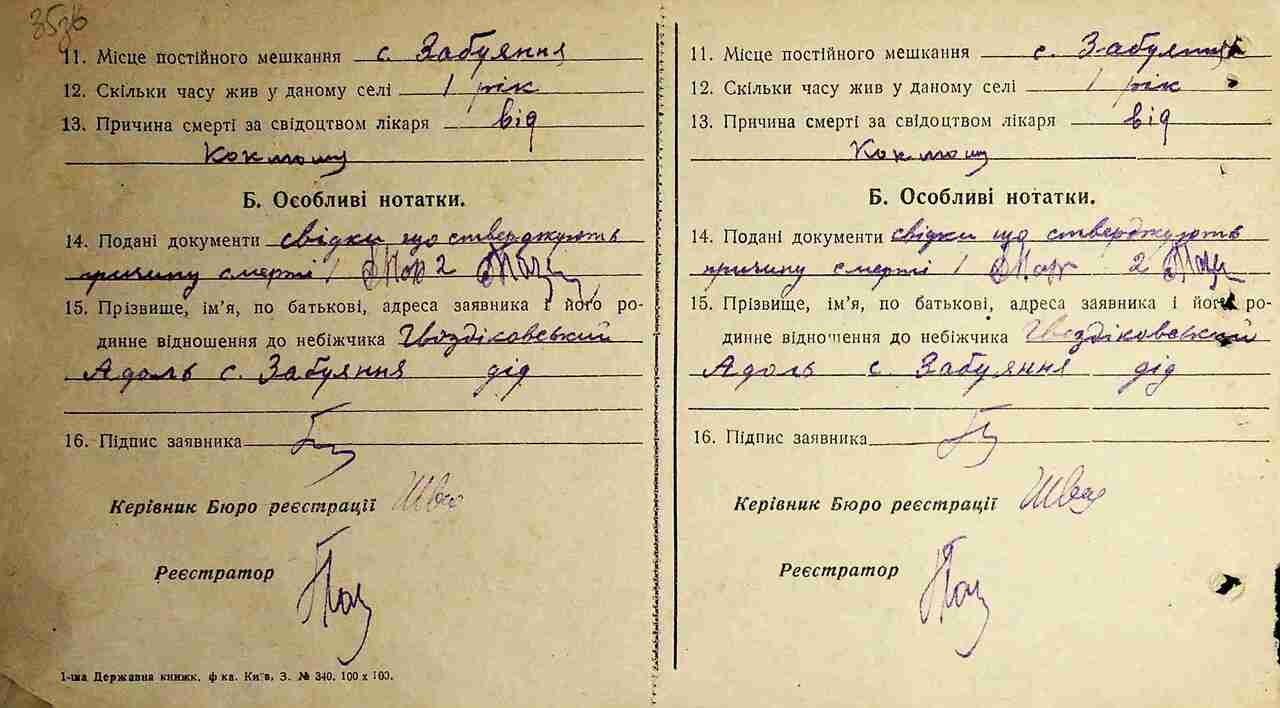 35зв
11. Місце постійного мешкання с. Забуяння
12. Скільки часу жив у даному селі 1 рік
13. Причина смерті за свідоцтвом лікаря від
Коклюшу
Б. Особливі нотатки.
14. Подані документи свідки що стверджують
причину смерті 1 2
15. Прізвище, ім’я, по батькові, адреса заявника і його ро-
динне відношення до небіжчика Гвоздіковський
Адоль с. Забуяння дід
16. Підпис заявника
Керівник Бюро реєстрації
Реєстратор
1-ша Державна книжк. ф-ка. Київ, З. № 340. 100 x 100.
11. Місце постійного мешкання с. Забуяння
12. Скільки часу жив у даному селі 1 рік
13. Причина смерті за свідоцтвом лікаря від
Коклюшу
Б. Особливі нотатки.
14. Подані документи свідки що стверджують
причину смерті 1 2
15. Прізвище, ім’я, по батькові, адреса заявника і його ро-
динне відношення до небіжчика Гвоздіковський
Адоль с. Забуяння дід
16. Підпис заявника
Керівник Бюро реєстрації
Реєстратор